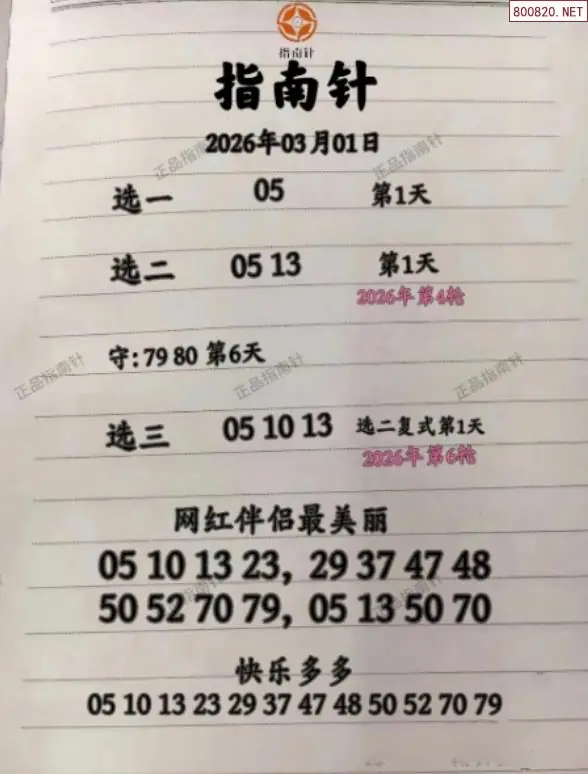 800820.NET
指南针
指南针
2026年03月01日
正品指南针 正品指南针
选一 05 第1天
选二 05 13 第1天
2026年第4轮
守:79 80 第6天
正品指南针 正品指南针 正品指南针
选三 05 10 13 选二复式第1天
2026年第6轮
网红伴侣最美丽
05 10 13 23, 29 37 47 48
50 52 70 79, 05 13 50 70
正品指南针 正品指南针
快乐多多
05 10 13 23 29 37 47 48 50 52 70 79